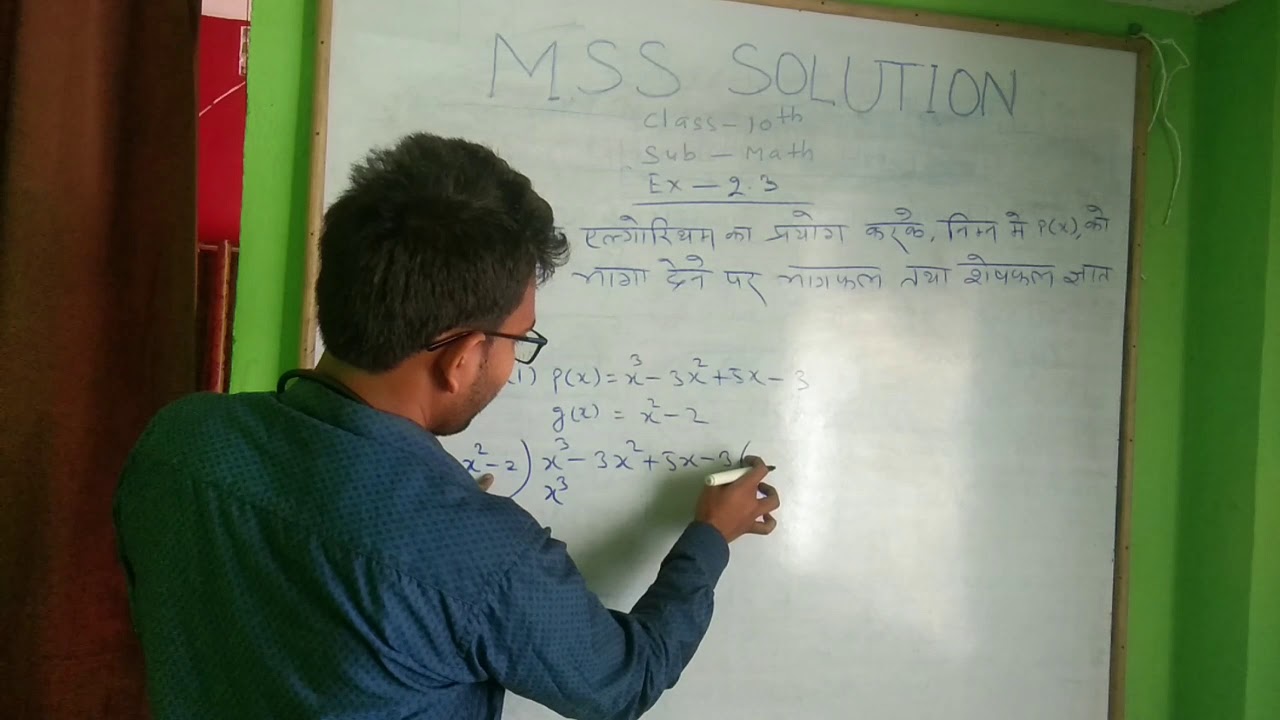 MSS SOLUTION
Class - 10th
Sub - Math
Ex - 2.3
एल्गोरिथम का प्रयोग करके, निम्न मे P(x), को
भागा देने पर भागफल तथा शेषफल ज्ञात
1) P(x) = x³ - 3x² + 5x - 3
g(x) = x² - 2
x² - 2 ) x³ - 3x² + 5x - 3 (
x³